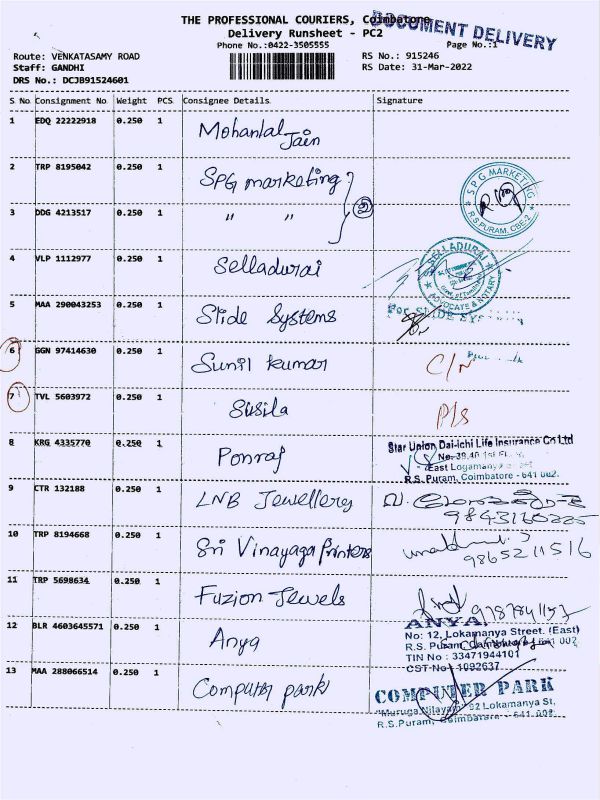 THE PROFESSIONAL COURIERS, Coimbatore
DOCUMENT DELIVERY
Delivery Runsheet - PC2
Phone No.:0422-3505555
Page No.:1
Route: VENKATASAMY ROAD
RS No.: 915246
Staff: GANDHI
RS Date: 31-Mar-2022
DRS No.: DCJB91524601
S No Consignment No Weight PCS Consignee Details Signature
1 EDQ 22222918 0.250 1 Mohanlal Jain
2 TRP 8195042 0.250 1 SPG marketing
SPG MARKETING
R.S.PURAM, CBE-2
3 DDG 4213517 0.250 1 " " 2
4 VLP 1112977 0.250 1 Selladurai
SELLADURAI
ADVOCATE & NOTARY
5 MAA 290043253 0.250 1 Slide Systems
For SLIDE SYSTEMS
6 GGN 97414630 0.250 1 Sunil kumar C/N
7 TVL 5603972 0.250 1 Susila P/s
8 KRG 4335770 0.250 1 Ponraj
Star Union Dai-ichi Life Insurance Co Ltd
No. 39,40 1st
East Logamanya
R.S. Puram, Coimbatore - 641 002.
9 CTR 132188 0.250 1 LNB Jewellery
9843160225
10 TRP 8194668 0.250 1 Sri Vinayaga Printers
9865211516
11 TRP 5698634 0.250 1 Fuzion Jewels
12 BLR 4603645571 0.250 1 Anya
ANYA
No: 12, Lokamanya Street. (East)
R.S. Puram, Coimbatore 641 002
TIN No : 33471944101
CST No : 1092637
13 MAA 288066514 0.250 1 Computer park
COMPUTER PARK
"Muruga Nilayam" 92 Lokamanya St,
R.S.Puram, Coimbatore - 641 002.